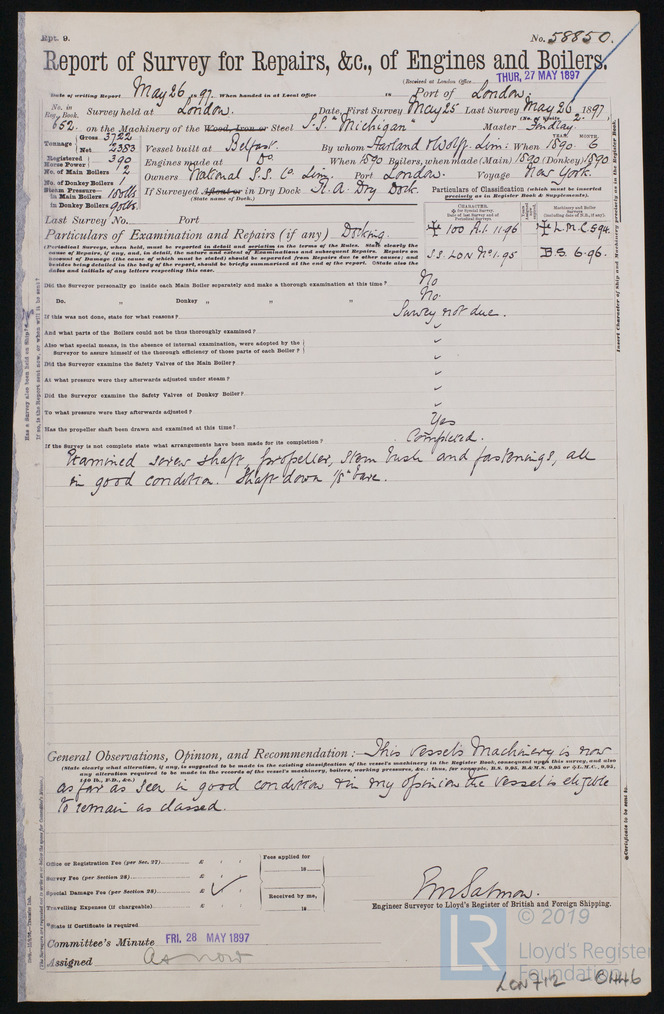 Rpt. 9.
No. 58850.
Report of Survey for Repairs, &c., of Engines and Boilers.
(Received at London Office THUR, 27 MAY 1897
Date of writing Report May 26 1897 When handed in at Local Office 18 Port of London.
No. in Reg. Book. Survey held at London. Date, First Survey May 25 Last Survey May 26 1897
(No. of Visits 2.)
652. on the Machinery of the Wood, Iron or Steel S.S. "Michigan" Master Findlay.
Tonnage Gross 3722 Net 2353 Vessel built at Belfast. By whom Harland & Wolff. Lim: When 1890. 6 YEAR. MONTH.
Registered Horse Power 390 Engines made at Do. When 1890 Boilers, when made (Main) 1890 (Donkey) 1890
No. of Main Boilers 2 Owners National S.S. Co. Lim: Port London. Voyage New York.
No. of Donkey Boilers 1
Steam Pressure in Main Boilers If Surveyed Afloat or in Dry Dock R. A. Dry Dock.
(State name of Dock.)
in Donkey Boilers
Particulars of Classification (which must be inserted precisely as in Register Book & Supplements).
Last Survey No. Port
Particulars of Examination and Repairs (if any) Docking.
100 A.1. 11.96 L.M.C. 5.94.
S.S. LON No 1.95 B.S. 6.96.
(Periodical Surveys, when held, must be reported in detail and seriatim in the terms of the Rules. State clearly the
cause of Repairs, if any, and, in detail, the nature and extent of Examinations and subsequent Repairs. Repairs on
account of Damage (the cause of which must be stated) should be separated from Repairs due to other causes; and
besides being detailed in the body of the report, should be briefly summarised at the end of the report. State also the
dates and initials of any letters respecting this case.
Did the Surveyor personally go inside each Main Boiler separately and make a thorough examination at this time? No
Do. „ Donkey „ „ „ No.
If this was not done, state for what reasons? Survey not due.
And what parts of the Boilers could not be thus thoroughly examined?
Also what special means, in the absence of internal examination, were adopted by the
Surveyor to assure himself of the thorough efficiency of those parts of each Boiler?
Did the Surveyor examine the Safety Valves of the Main Boiler?
At what pressure were they afterwards adjusted under steam?
Did the Surveyor examine the Safety Valves of Donkey Boiler?
To what pressure were they afterwards adjusted?
Has the propeller shaft been drawn and examined at this time? Yes
If the Survey is not complete state what arrangements have been made for its completion? Completed.
Examined screw shaft, propeller, stern bush and fastenings, all
in good condition. Shaft down 1/8" bare.
General Observations, Opinion, and Recommendation :— This vessels Machinery is now
(State clearly what alteration, if any, is suggested to be made in the existing classification of the vessel's machinery in the Register Book, consequent upon this survey, and also
any alteration required to be made in the records of the vessel's machinery, boilers, working pressures, &c.: thus, for example, B.S. 9,95, B.&M.S. 9,95 or L.M.C., 9,95,
as far as seen in good condition & in my opinion the vessel is eligible
to remain as classed.
Office or Registration Fee (per Sec. 27) £
Survey Fee (per Section 28) £
Special Damage Fee (per Section 28) £
Travelling Expenses (if chargeable) £
Fees applied for 18
Received by me, 18
R M Salmon.
Engineer Surveyor to Lloyd's Register of British and Foreign Shipping.
*State if Certificate is required
Committee's Minute FRI. 28 MAY 1897
Assigned as now
LR © 2019
Lloyd's Register
Foundation
LON 712 - 0446